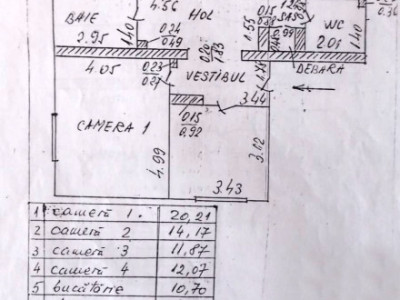 4.56
BAIE
HOL
WC
2.95
1.40
0.24
0.49
1.55
0.15
2.01
1.40
0.36
4.05
0.23
0.20
1.83
DEBARA
VESTIBUL
3.44
CAMERA 1
0.15
0.92
4.99
3.02
3.43
1 cameră 1. 20,21
2 cameră 2 14,17
3 cameră 3 11,87
4 cameră 4 12,07
5 bucătărie 10,70